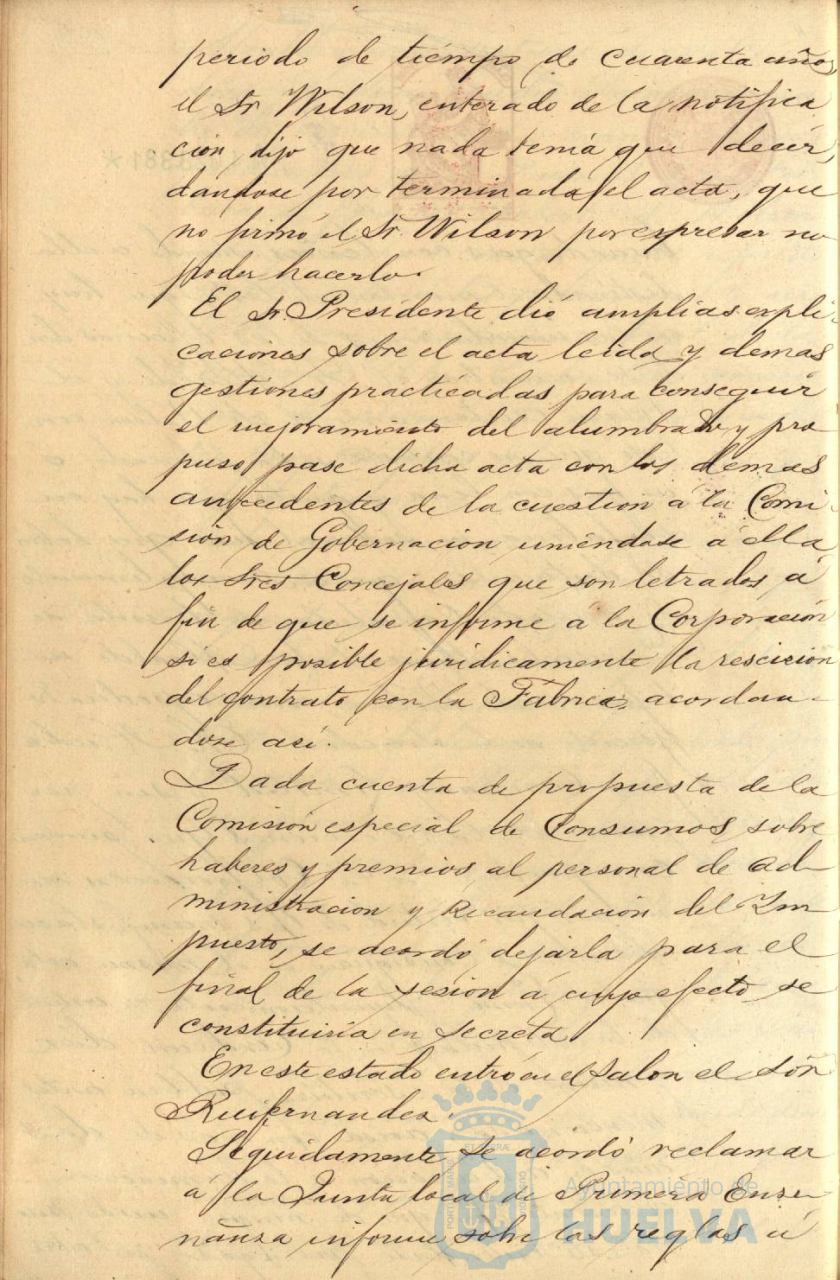 periodo de tiempo de cuarenta años,
el Sr Wilson, enterado de la notifica
ción, dijo que nada tenia que decir,
dandose por terminada el acta, que
no firmó el Sr. Wilson por espresar no
poder hacerlo.
El Sr. Presidente dió amplias expli-
caciones sobre el acta leida y demas
gestiones practicadas para conseguir
el mejoramiento del alumbrado y pro
puso pase dicha acta con los demas
antecedentes de la cuestion á la Comi-
sión de Gobernacion uniéndose á ella
los Sres Concejales que son letrados, á
fin de que se informe á la Corporación
si es posible juridicamente la rescición
del contrato con la Fábrica, acordan-
dose así.
Dada cuenta de propuesta de la
Comisión especial de Consumos, sobre
haberes y premios al personal de ad-
ministracion y Recaudación del Im
puesto, se acordó dejarla para el
final de la sesión á cuyo efecto se
constituiria en secreta
En este estado entró en el Salon el Sôr
Ruifernandez.
Seguidamente se acordó reclamar
á la Junta local de Primera Ense-
ñanza informe sobre las reglas á
Ayuntamiento de
HUELVA